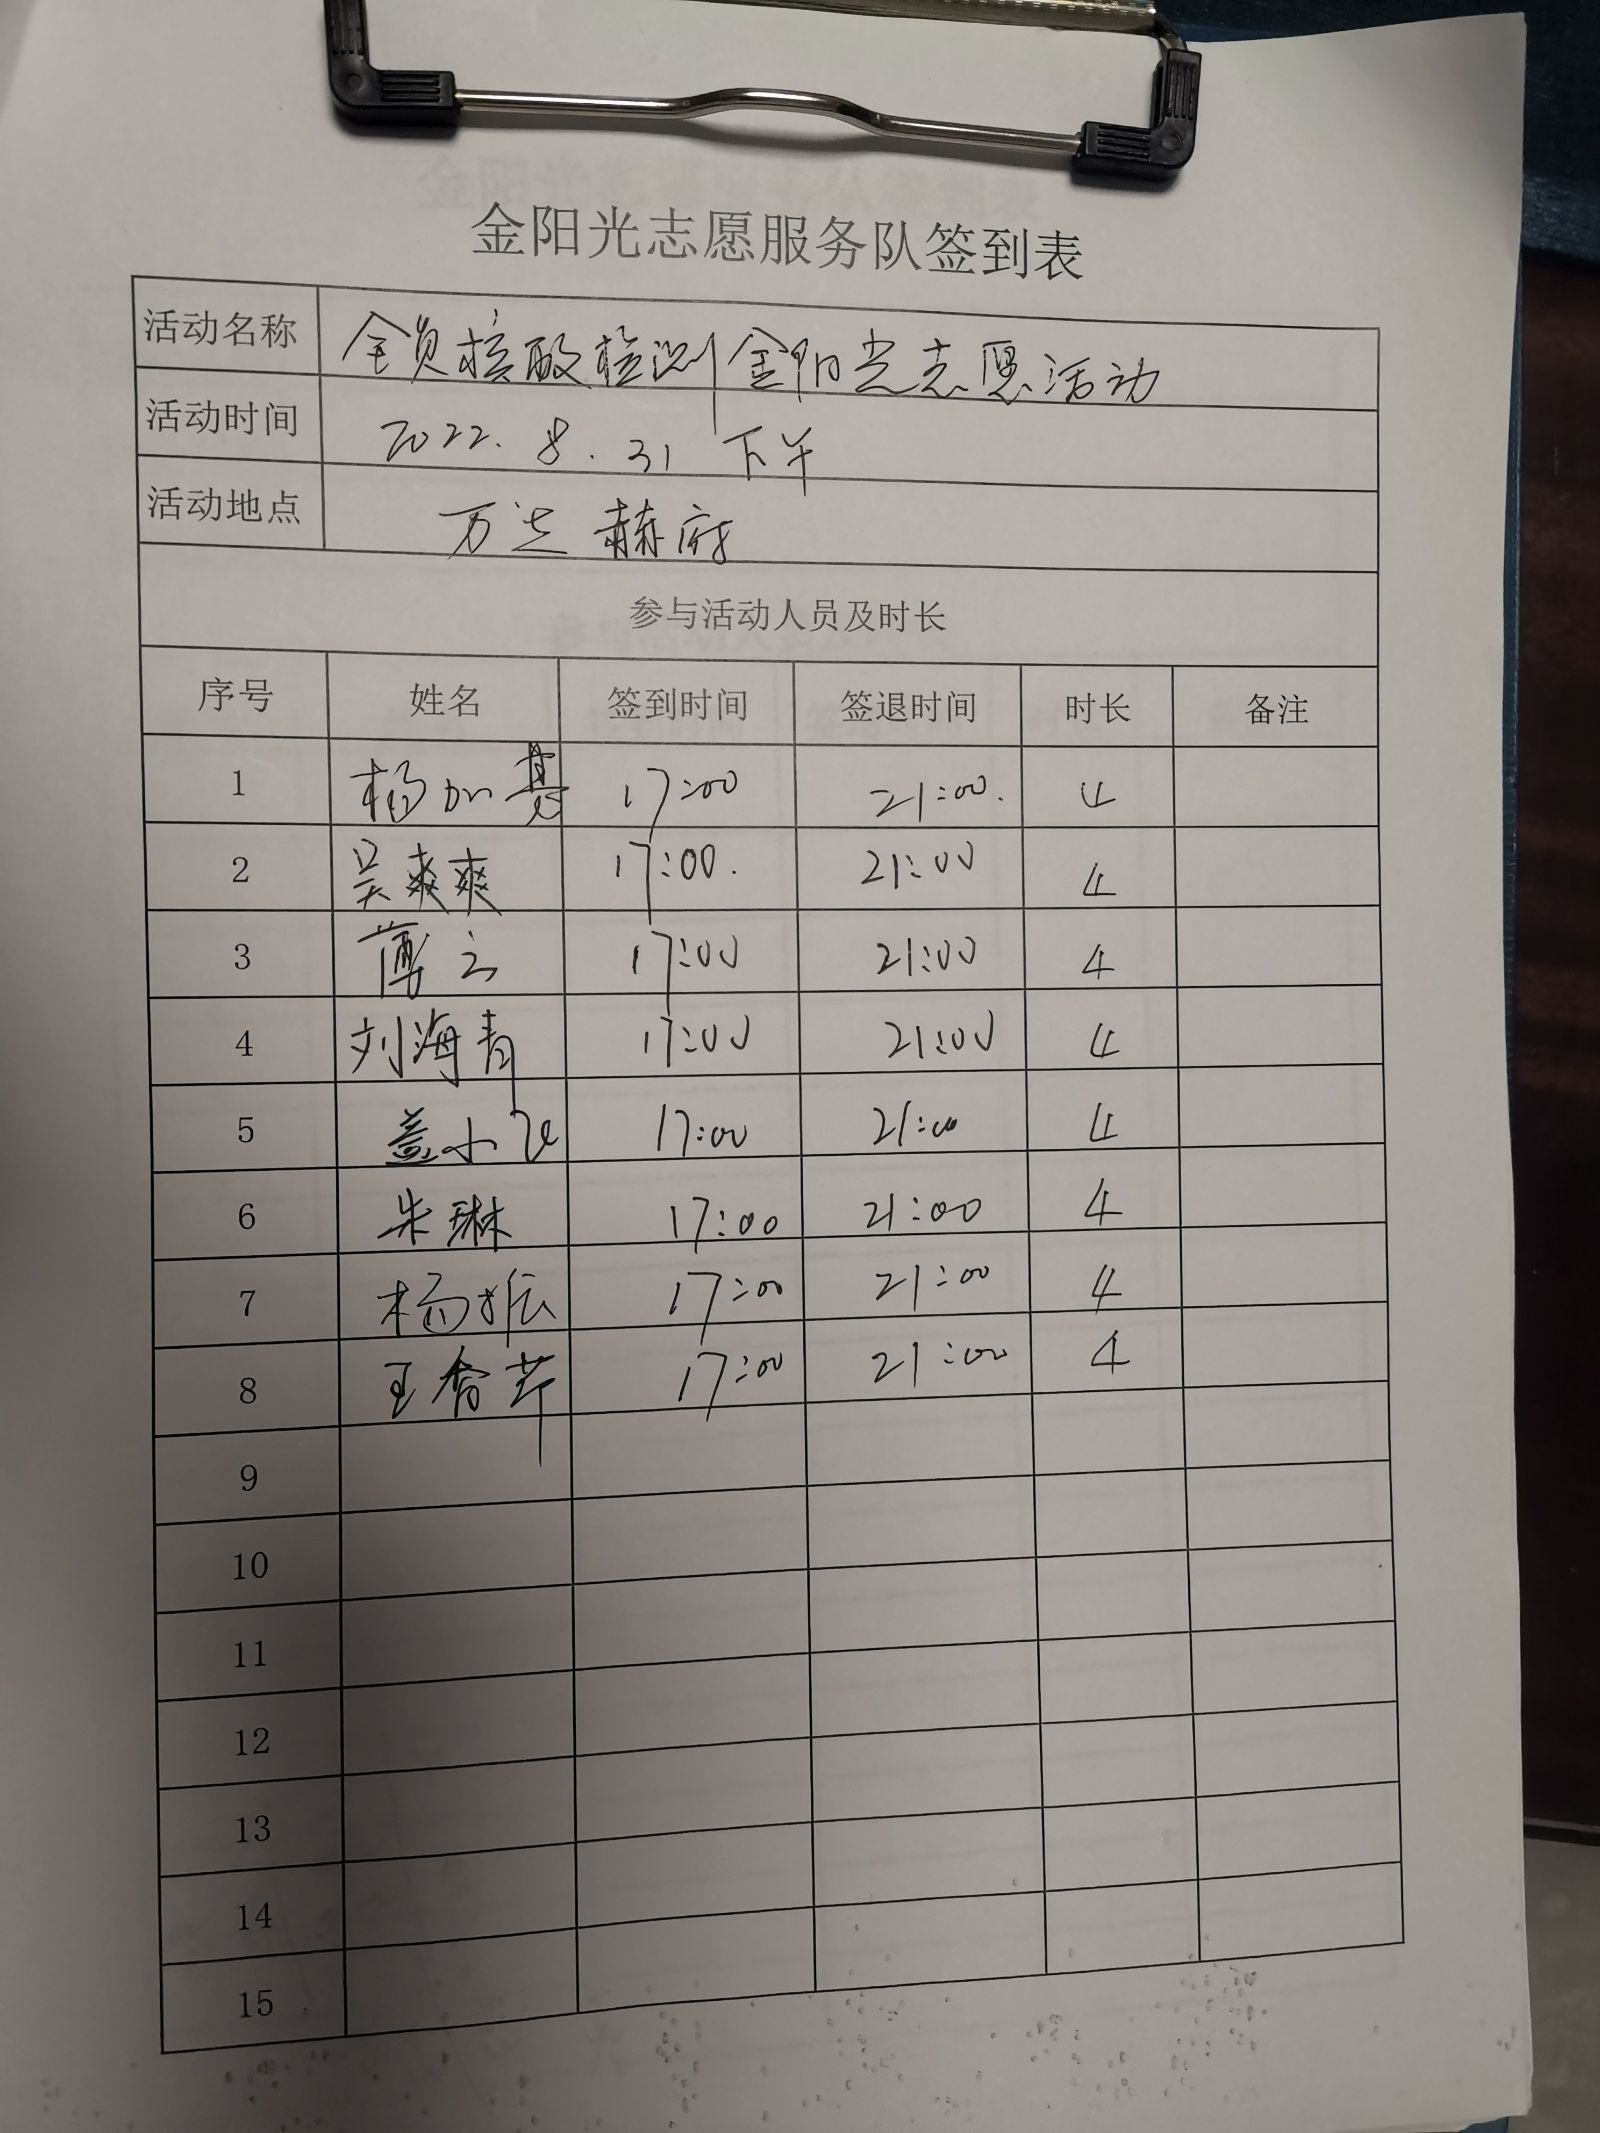 金阳光志愿服务队签到表
活动名称 全员核酸检测金阳光志愿活动
活动时间 2022.8.31 下午
活动地点 万达赫府
参与活动人员及时长
序号 姓名 签到时间 签退时间 时长 备注
1 杨加 17:00 21:00. 4
2 吴爽爽 17:00. 21:00 4
3 薄云 17:00 21:00 4
4 刘海青 17:00 21:00 4
5 盖小飞 17:00 21:00 4
6 朱琳 17:00 21:00 4
7 杨振 17:00 21:00 4
8 王香芹 17:00 21:00 4
9
10
11
12
13
14
15